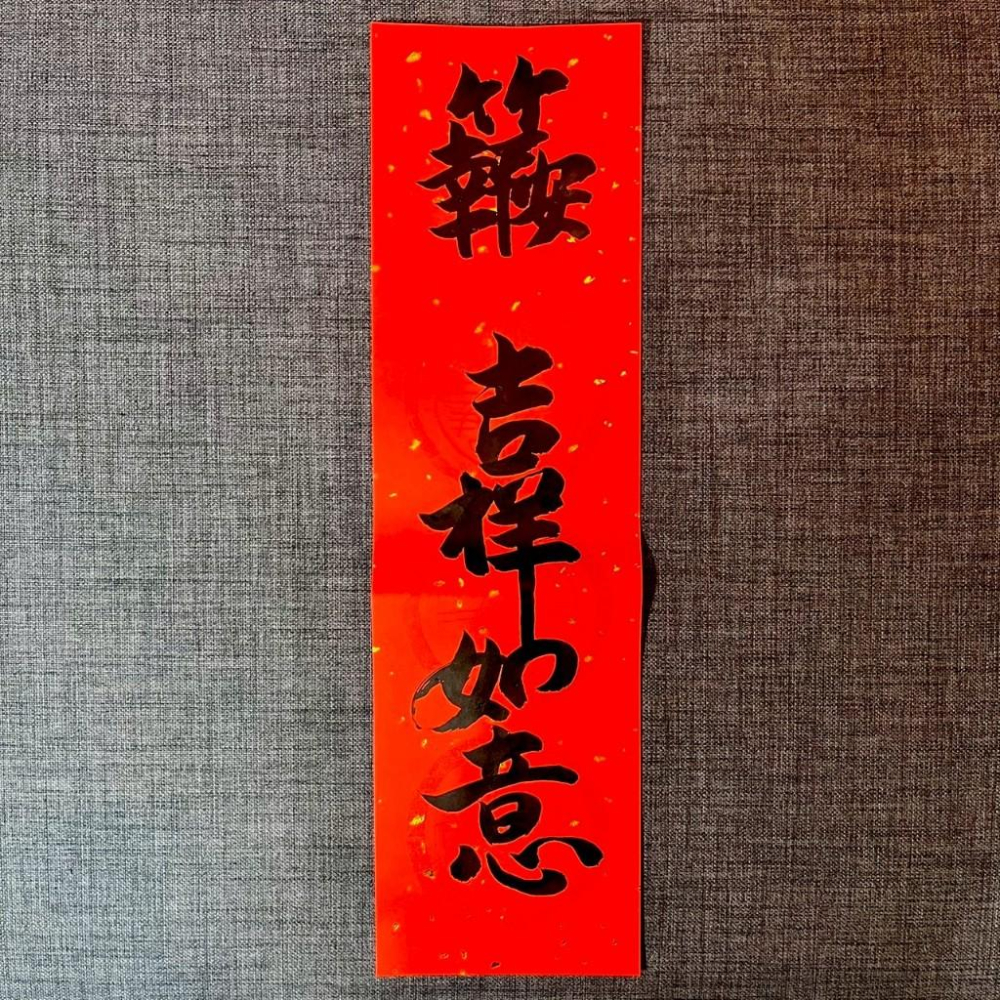 竹報平安 吉祥如意